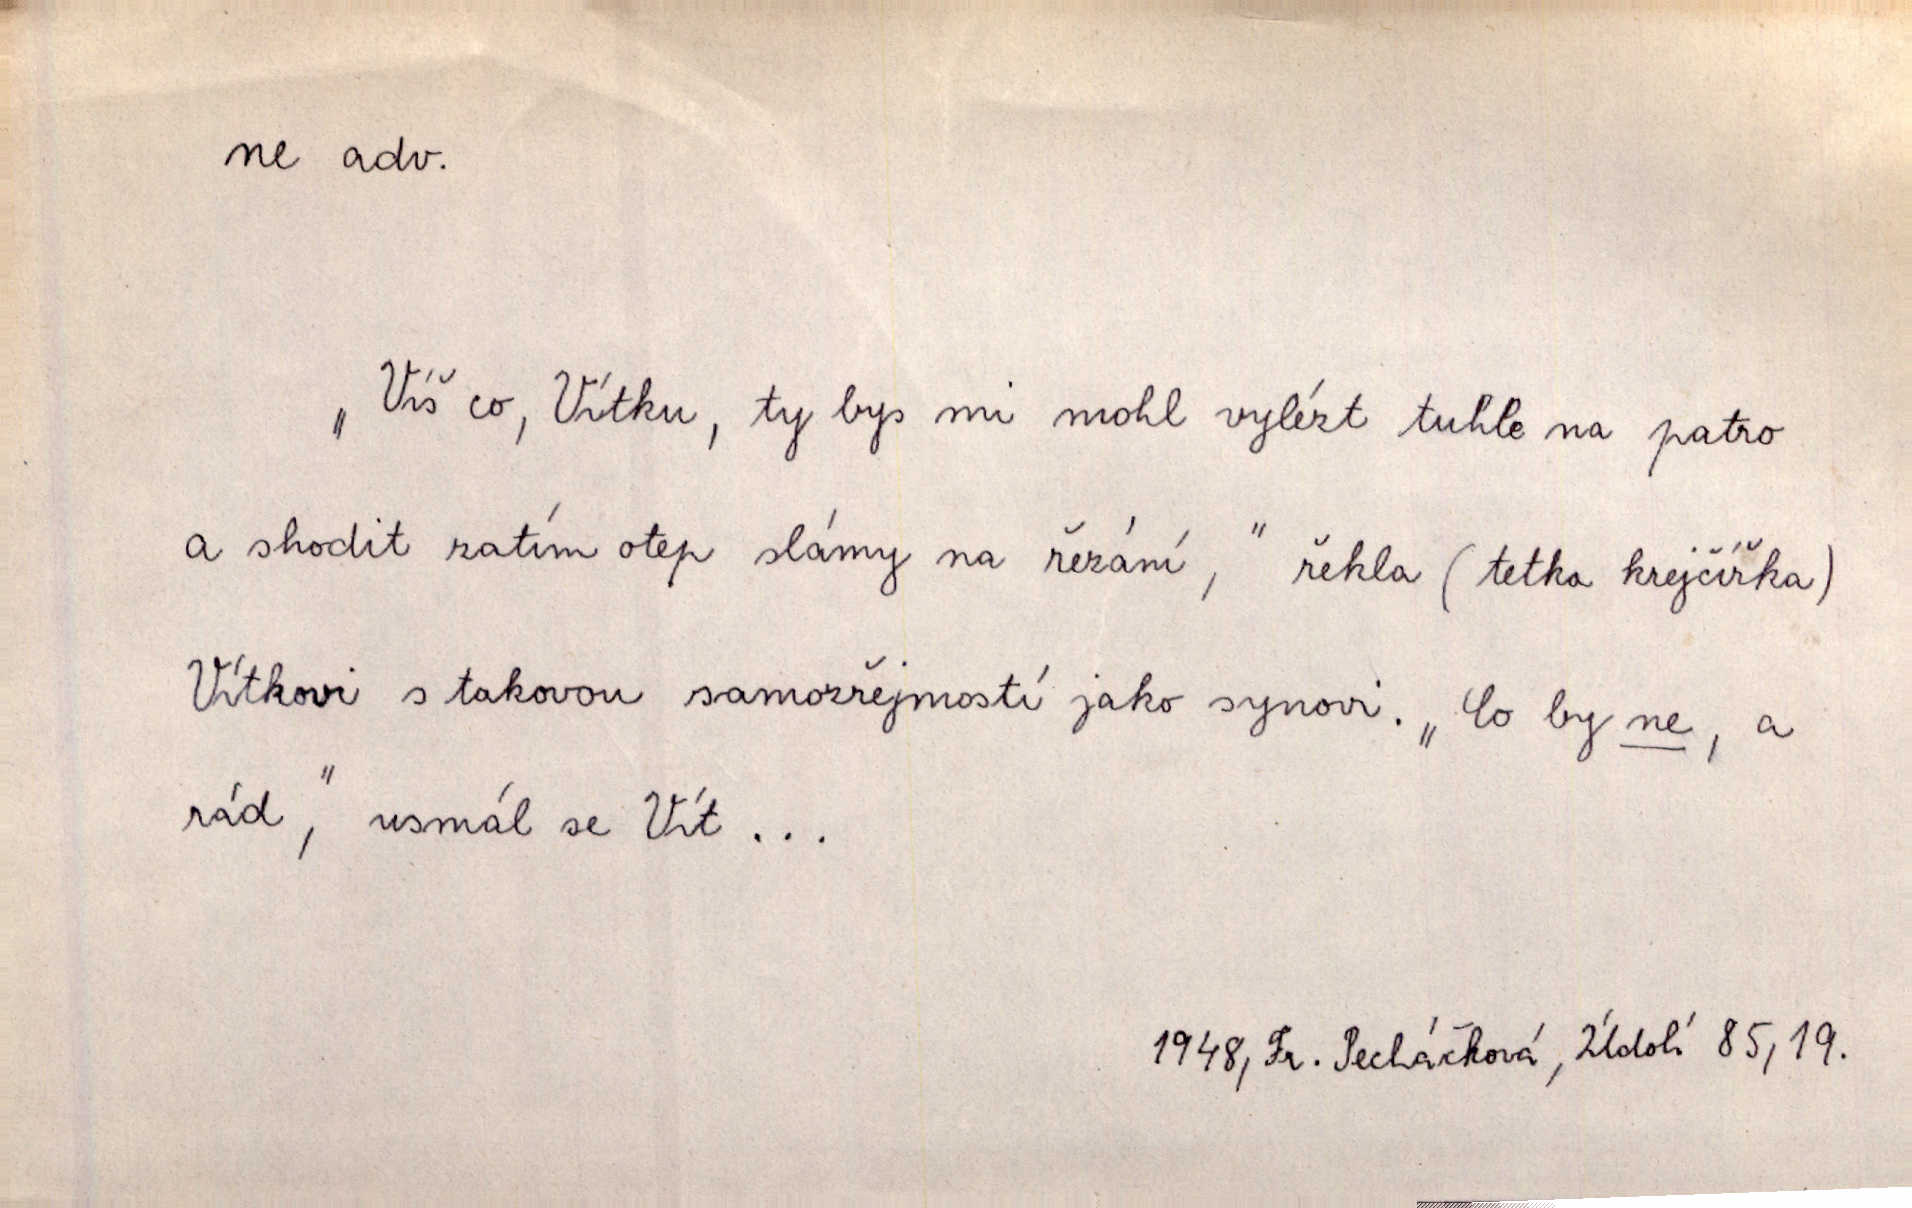 ne adv.
„Víš co, Vítku, ty bys mi mohl vylézt tuhle na patro
a shodit zatím otep slámy na řezání," řekla (tetka krejčířka)
Vítkovi s takovou samozřejmostí jako synovi. „Co by ne, a
rád," usmál se Vít ...
1948, Fr. Pecháčková, Údolí 85, 19.